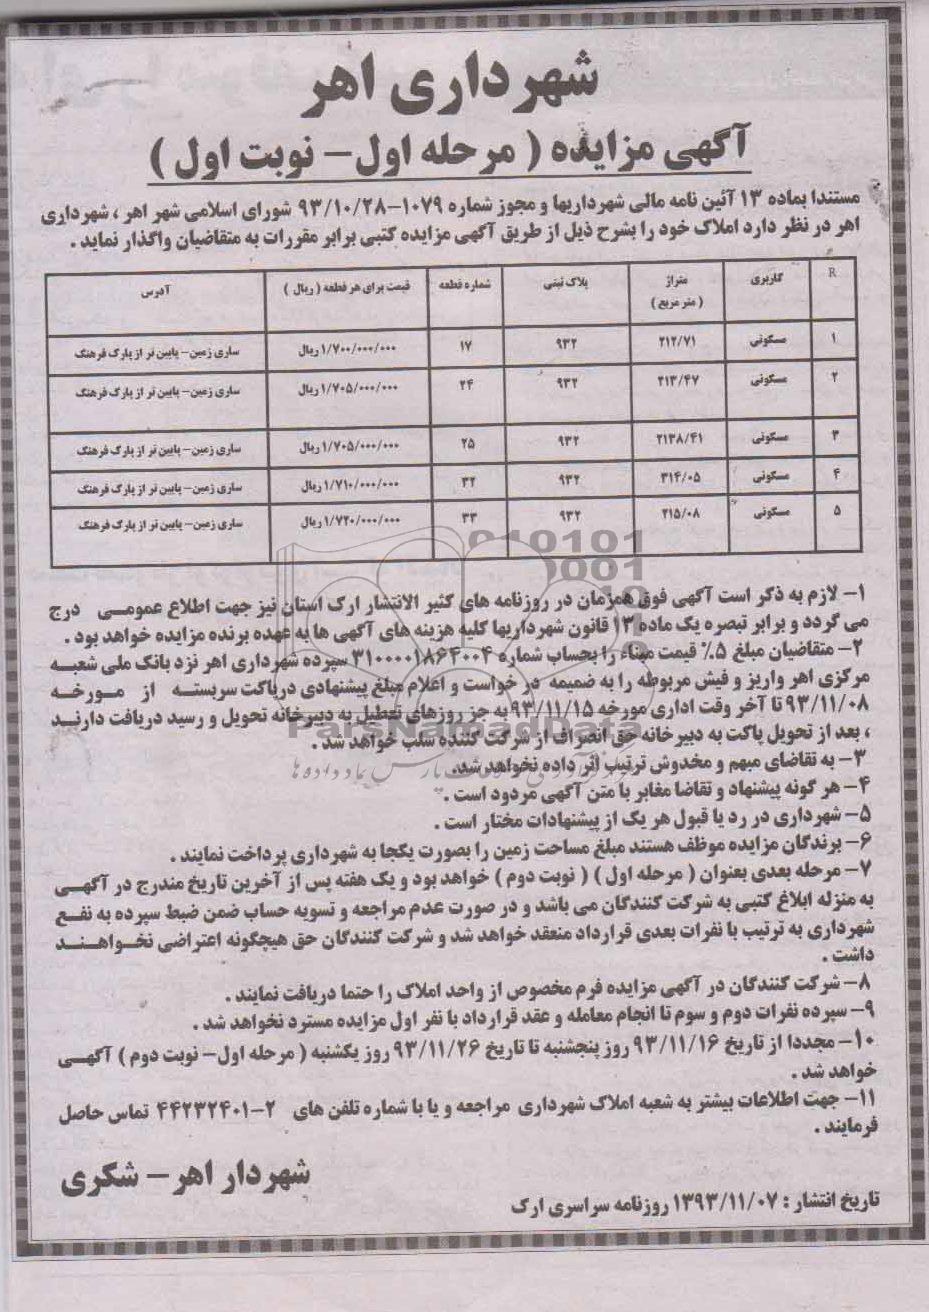 شهرداری اهر
آگهی مزایده ( مرحله اول – نوبت اول )
مستندا بماده ۱۳ آئین نامه مالی شهرداریها و مجوز شماره ۱۰۷۹–۹۳/۱۰/۲۸ شورای اسلامی شهر اهر ، شهرداری
اهر در نظر دارد املاک خود را بشرح ذیل از طریق آگهی مزایده کتبی برابر مقررات به متقاضیان واگذار نماید .
R کاربری متراژ ( متر مربع ) پلاک ثبتی شماره قطعه قیمت برای هر قطعه ( ریال ) آدرس
۱ مسکونی ۲۱۲/۷۱ ۹۳۲ ۱۷ ۱/۷۰۰/۰۰۰/۰۰۰ ریال ساری زمین – پایین تر از پارک فرهنگ
۲ مسکونی ۲۱۳/۴۷ ۹۳۲ ۲۴ ۱/۷۰۵/۰۰۰/۰۰۰ ریال ساری زمین – پایین تر از پارک فرهنگ
۳ مسکونی ۲۱۳۸/۴۱ ۹۳۲ ۲۵ ۱/۷۰۵/۰۰۰/۰۰۰ ریال ساری زمین – پایین تر از پارک فرهنگ
۴ مسکونی ۳۱۴/۰۵ ۹۳۲ ۳۲ ۱/۷۱۰/۰۰۰/۰۰۰ ریال ساری زمین – پایین تر از پارک فرهنگ
۵ مسکونی ۲۱۵/۰۸ ۹۳۲ ۳۳ ۱/۷۲۰/۰۰۰/۰۰۰ ریال ساری زمین – پایین تر از پارک فرهنگ
۱– لازم به ذکر است آگهی فوق همزمان در روزنامه های کثیر الانتشار ارک استان نیز جهت اطلاع عمومی درج
می گردد و برابر تبصره یک ماده ۱۳ قانون شهرداریها کلیه هزینه های آگهی ها به عهده برنده مزایده خواهد بود .
۲– متقاضیان مبلغ ۵٪ قیمت مبناء را بحساب شماره ۳۱۰۰۰۰۱۸۶۴۰۰۴ سپرده شهرداری اهر نزد بانک ملی شعبه
مرکزی اهر واریز و فیش مربوطه را به ضمیمه در خواست و اعلام مبلغ پیشنهادی درپاکت سربسته از مورخه
۹۳/۱۱/۰۸ تا آخر وقت اداری مورخه ۹۳/۱۱/۱۵ به جز روزهای تعطیل به دبیرخانه تحویل و رسید دریافت دارند
، بعد از تحویل پاکت به دبیرخانه حق انصراف از شرکت کننده سلب خواهد شد .
۳– به تقاضای مبهم و مخدوش ترتیب اثر داده نخواهد شد.
۴– هر گونه پیشنهاد و تقاضا مغایر با متن آگهی مردود است .
۵– شهرداری در رد یا قبول هر یک از پیشنهادات مختار است .
۶– برندگان مزایده موظف هستند مبلغ مساحت زمین را بصورت یکجا به شهرداری پرداخت نمایند .
۷– مرحله بعدی بعنوان ( مرحله اول ) ( نوبت دوم ) خواهد بود و یک هفته پس از آخرین تاریخ مندرج در آگهی
به منزله ابلاغ کتبی به شرکت کنندگان می باشد و در صورت عدم مراجعه و تسویه حساب ضمن ضبط سپرده به نفع
شهرداری به ترتیب با نفرات بعدی قرارداد منعقد خواهد شد و شرکت کنندگان حق هیچگونه اعتراضی نخواهند
داشت .
۸– شرکت کنندگان در آگهی مزایده فرم مخصوص از واحد املاک را حتما دریافت نمایند .
۹– سپرده نفرات دوم و سوم تا انجام معامله و عقد قرارداد با نفر اول مزایده مسترد نخواهد شد .
۱۰– مجددا از تاریخ ۹۳/۱۱/۱۶ روز پنجشنبه تا تاریخ ۹۳/۱۱/۲۶ روز یکشنبه ( مرحله اول– نوبت دوم ) آگهی
خواهد شد .
۱۱– جهت اطلاعات بیشتر به شعبه املاک شهرداری مراجعه و یا با شماره تلفن های ۲–۴۴۲۳۲۴۰۱ تماس حاصل
فرمایند .
شهردار اهر – شکری
تاریخ انتشار : ۱۳۹۳/۱۱/۰۷ روزنامه سراسری ارک
ParsNamadData